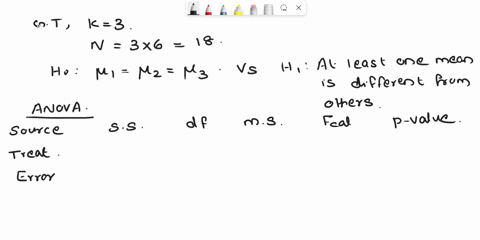 G.T, K=3.
N = 3×6 = 18.
H₀: μ₁ = μ₂ = μ₃ . Vs H₁: At least one mean
is different from
others.
ANOVA.
Source S.S. df m.s. Fcal p-value.
Treat.
Error